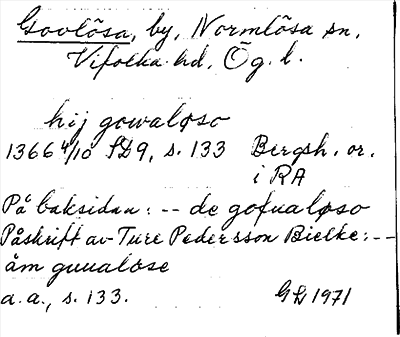 Govlösa, by, Normlösa sn,
Vifolka hd, Ög. l.
hij gowaløso
1366 4/10 SD9, s. 133 Bergsh. or.
i RA
På baksidan: -- de gofualøso
Påskrift av Ture Pedersson Bielke: --
åm guualøse
a.a., s. 133. GL 1971